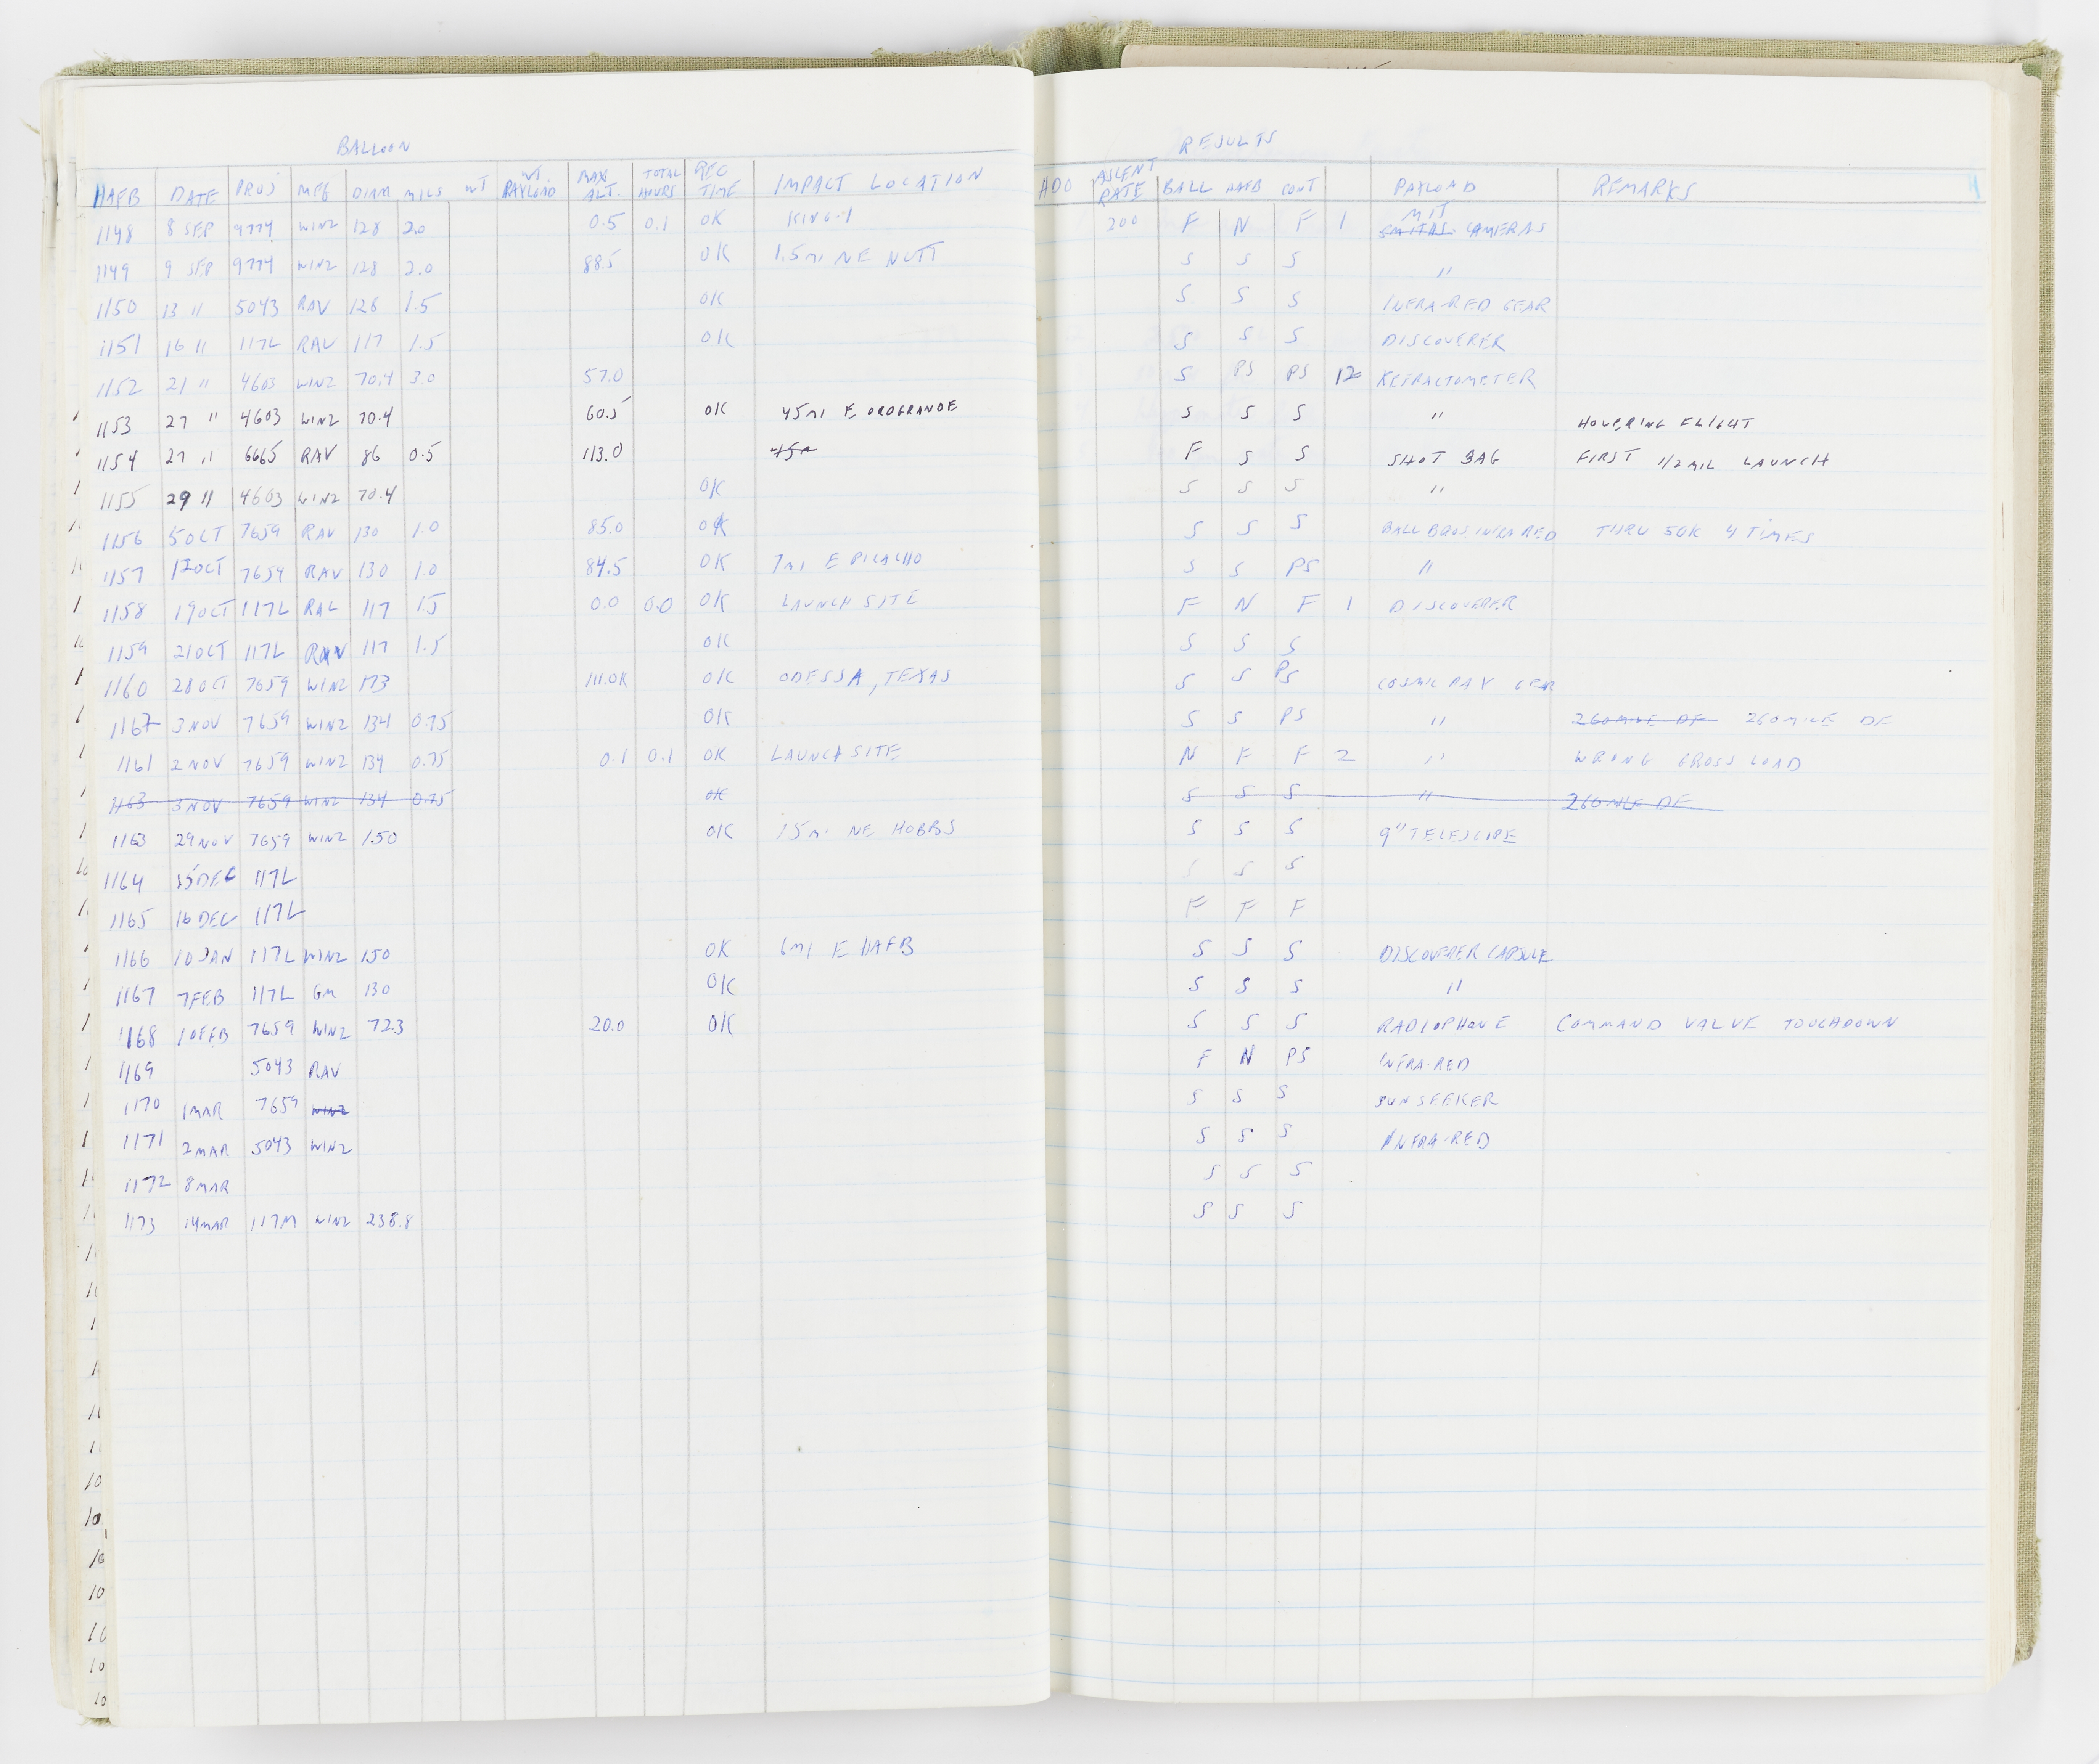 BALLOON RESULTS
HAFB DATE PROJ MFG DIAM MILS WT WT. PAYLOAD MAX ALT. TOTAL HOURS REC TIME IMPACT LOCATION ADO ASCENT RATE BALL HAFB CONT PAYLOAD REMARKS
1148 8 SEP 9774 WINZ 128 2.0 0.5 0.1 OK KING-1 200 F N F 1 MIT CAMERAS
1149 9 SEP 9774 WINZ 128 2.0 88.5 OK 1.5 MI NE NUTT S S S "
1150 13 " 5043 RAV 128 1.5 OK S S S INFRA-RED GEAR
1151 16 " 117L RAV 117 1.5 OK S S S DISCOVERER
1152 21 " 4603 WINZ 70.4 3.0 57.0 S PS PS 12 REFRACTOMETER
1153 27 " 4603 WINZ 70.4 60.5 OK 45 MI E OROGRANDE S S S " HOVERING FLIGHT
1154 27 " 6665 RAV 86 0.5 113.0 F S S SHOT BAG FIRST 1/2 MIL LAUNCH
1155 29 " 4603 WINZ 70.4 OK S S S "
1156 5 OCT 7659 RAV 130 1.0 85.0 OK S S S BALL BROS. INFRA RED THRU 50K 4 TIMES
1157 12 OCT 7659 RAV 130 1.0 84.5 OK 7 MI E PICACHO S S PS "
1158 19 OCT 117L RAL 117 15 0.0 0.0 OK LAUNCH SITE F N F 1 DISCOVERER
1159 21 OCT 117L RAV 117 1.5 OK S S S
1160 28 OCT 7659 WINZ 173 111.0K OK ODESSA, TEXAS S S PS COSMIC RAY GEAR
1162 3 NOV 7659 WINZ 134 0.75 OK S S PS " 260 MILE DF 260 MILE DF
1161 2 NOV 7659 WINZ 134 0.75 0.1 0.1 OK LAUNCH SITE N F F 2 " WRONG GROSS LOAD
1163 3 NOV 7659 WINZ 134 0.75 OK S S S " 260 MLE DF
1163 29 NOV 7659 WINZ 150 OK 15 MI NE HOBBS S S S 9" TELESCOPE
1164 15 DEC 117L S S S
1165 16 DEC 117L F F F
1166 10 JAN 117L WINZ 150 OK 6 MI E HAFB S S S DISCOVERER CAPSULE
1167 7 FEB 117L GM 130 OK S S S "
1168 10 FEB 7659 WINZ 72.3 20.0 OK S S S RADIOPHONE COMMAND VALVE TOUCHDOWN
1169 5043 RAV F N PS INFRA-RED
1170 1 MAR 7659 WINZ S S S SUN SEEKER
1171 2 MAR 5043 WINZ S S S INFRA-RED
1172 8 MAR S S S
1173 14 MAR 117M WINZ 238.8 S S S